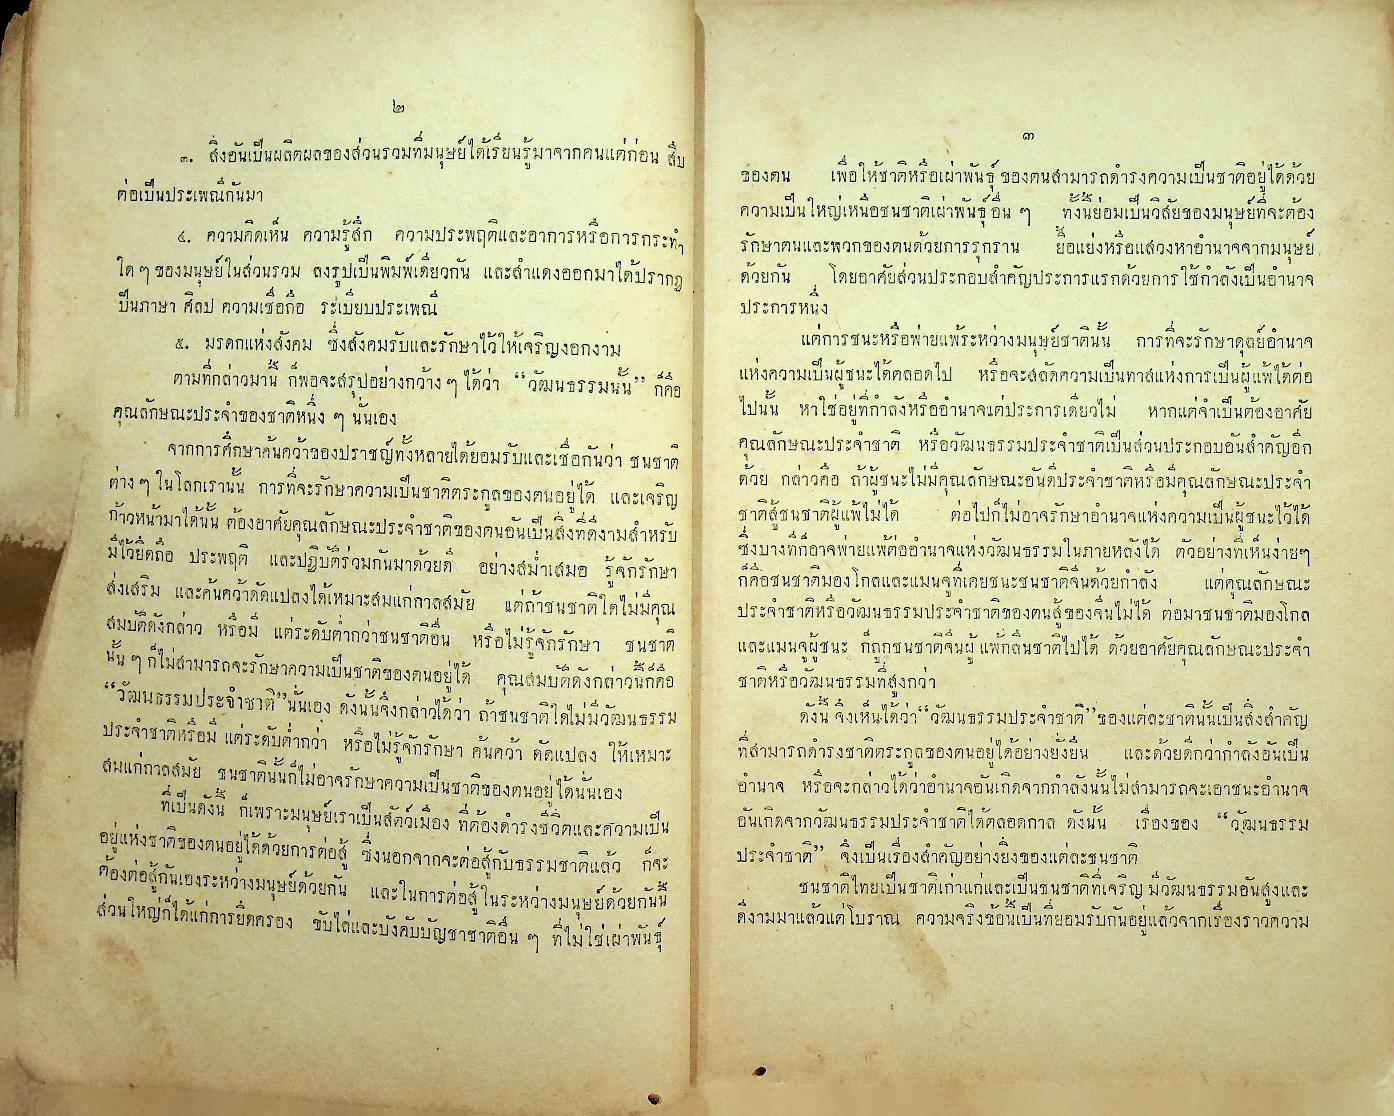 ๒
๓. สิ่งอันเป็นผลิตผลของส่วนรวมที่มนุษย์ได้เรียนรู้มาจากคนแต่ก่อน สืบ
ต่อเป็นประเพณีกันมา
๔. ความคิดเห็น ความรู้สึก ความประพฤติและอาการหรือการกระทำ
ใด ๆ ของมนุษย์ในส่วนรวม ลงรูปเป็นพิมพ์เดียวกัน และสำแดงออกมาได้ปรากฏ
เป็นภาษา ศิลป ความเชื่อถือ ระเบียบประเพณี
๕. มรดกแห่งสังคม ซึ่งสังคมรับและรักษาไว้ให้เจริญงอกงาม
ตามที่กล่าวมานี้ ก็พอจะสรุปอย่างกว้าง ๆ ได้ว่า “วัฒนธรรมนั้น” ก็คือ
คุณลักษณะประจำของชาติหนึ่ง ๆ นั่นเอง
จากการศึกษาค้นคว้าของปราชญ์ทั้งหลายได้ยอมรับและเชื่อกันว่า ชนชาติ
ต่าง ๆ ในโลกเรานั้น การที่จะรักษาความเป็นชาติตระกูลของตนอยู่ได้ และเจริญ
ก้าวหน้ามาได้นั้น ต้องอาศัยคุณลักษณะประจำชาติของตนอันเป็นสิ่งที่ดีงามสำหรับ
มีไว้ยึดถือ ประพฤติ และปฏิบัติร่วมกันมาด้วยดี อย่างสม่ำเสมอ รู้จักรักษา
ส่งเสริม และค้นคว้าดัดแปลงได้เหมาะสมแก่กาลสมัย แต่ถ้าชนชาติใดไม่มีคุณ
สมบัติดังกล่าว หรือมี แต่ระดับต่ำกว่าชนชาติอื่น หรือไม่รู้จักรักษา ชนชาติ
นั้น ๆ ก็ไม่สามารถจะรักษาความเป็นชาติของตนอยู่ได้ คุณสมบัติดังกล่าวนี้ก็คือ
“วัฒนธรรมประจำชาติ” นั่นเอง ดังนั้นจึงกล่าวได้ว่า ถ้าชนชาติใดไม่มีวัฒนธรรม
ประจำชาติหรือมี แต่ระดับต่ำกว่า หรือไม่รู้จักรักษา ค้นคว้า ดัดแปลง ให้เหมาะ
สมแก่กาลสมัย ชนชาตินั้นก็ไม่อาจรักษาความเป็นชาติของตนอยู่ได้นั่นเอง
ที่เป็นดังนี้ ก็เพราะมนุษย์เราเป็นสัตว์เมือง ที่ต้องดำรงชีวิตและความเป็น
อยู่แห่งชาติของตนอยู่ได้ด้วยการต่อสู้ ซึ่งนอกจากจะต่อสู้กับธรรมชาติแล้ว ก็จะ
ต้องต่อสู้กันเองระหว่างมนุษย์ด้วยกัน และในการต่อสู้ในระหว่างมนุษย์ด้วยกันนี้
ส่วนใหญ่ก็ได้แก่การยึดครอง ขับไล่และบังคับบัญชาชาติอื่น ๆ ที่ไม่ใช่เผ่าพันธุ์
๓
ของตน เพื่อให้ชาติหรือเผ่าพันธุ์ของตนสามารถดำรงความเป็นชาติอยู่ได้ด้วย
ความเป็นใหญ่เหนือชนชาติเผ่าพันธุ์อื่น ๆ ทั้งนี้ย่อมเป็นวิสัยของมนุษย์ที่จะต้อง
รักษาตนและพวกของตนด้วยการรุกราน ยื้อแย่งหรือแสวงหาอำนาจจากมนุษย์
ด้วยกัน โดยอาศัยส่วนประกอบสำคัญประการแรกด้วยการใช้กำลังเป็นอำนาจ
ประการหนึ่ง
แต่การชนะหรือพ่ายแพ้ระหว่างมนุษย์ชาตินั้น การที่จะรักษาดุลย์อำนาจ
แห่งความเป็นผู้ชนะได้ตลอดไป หรือจะสลัดความเป็นทาสแห่งการเป็นผู้แพ้ได้ต่อ
ไปนั้น หาใช่อยู่ที่กำลังหรืออำนาจแต่ประการเดียวไม่ หากแต่จำเป็นต้องอาศัย
คุณลักษณะประจำชาติ หรือวัฒนธรรมประจำชาติเป็นส่วนประกอบอันสำคัญอีก
ด้วย กล่าวคือ ถ้าผู้ชนะไม่มีคุณลักษณะอันดีประจำชาติหรือมีคุณลักษณะประจำ
ชาติสู้ชนชาติผู้แพ้ไม่ได้ ต่อไปก็ไม่อาจรักษาอำนาจแห่งความเป็นผู้ชนะไว้ได้
ซึ่งบางทีก็อาจพ่ายแพ้ต่ออำนาจแห่งวัฒนธรรมในภายหลังได้ ตัวอย่างที่เห็นง่ายๆ
ก็คือชนชาติมองโกลและแมนจูที่เคยชนะชนชาติจีนด้วยกำลัง แต่คุณลักษณะ
ประจำชาติหรือวัฒนธรรมประจำชาติของตนสู้ของจีนไม่ได้ ต่อมาชนชาติมองโกล
และแมนจูผู้ชนะ ก็ถูกชนชาติจีนผู้แพ้กลืนชาติไปได้ ด้วยอาศัยคุณลักษณะประจำ
ชาติหรือวัฒนธรรมที่สูงกว่า
ดังนี้ จึงเห็นได้ว่า “วัฒนธรรมประจำชาติ” ของแต่ละชาตินั้นเป็นสิ่งสำคัญ
ที่สามารถดำรงชาติตระกูลของตนอยู่ได้อย่างยั่งยืน และด้วยดีกว่ากำลังอันเป็น
อำนาจ หรือจะกล่าวได้ว่าอำนาจอันเกิดจากกำลังนั้นไม่สามารถจะเอาชนะอำนาจ
อันเกิดจากวัฒนธรรมประจำชาติได้ตลอดกาล ดังนั้น เรื่องของ “วัฒนธรรม
ประจำชาติ” จึงเป็นเรื่องสำคัญอย่างยิ่งของแต่ละชนชาติ
ชนชาติไทยเป็นชาติเก่าแก่และเป็นชนชาติที่เจริญ มีวัฒนธรรมอันสูงและ
ดีงามมาแล้วแต่โบราณ ความจริงข้อนี้เป็นที่ยอมรับกันอยู่แล้วจากเรื่องราวความ